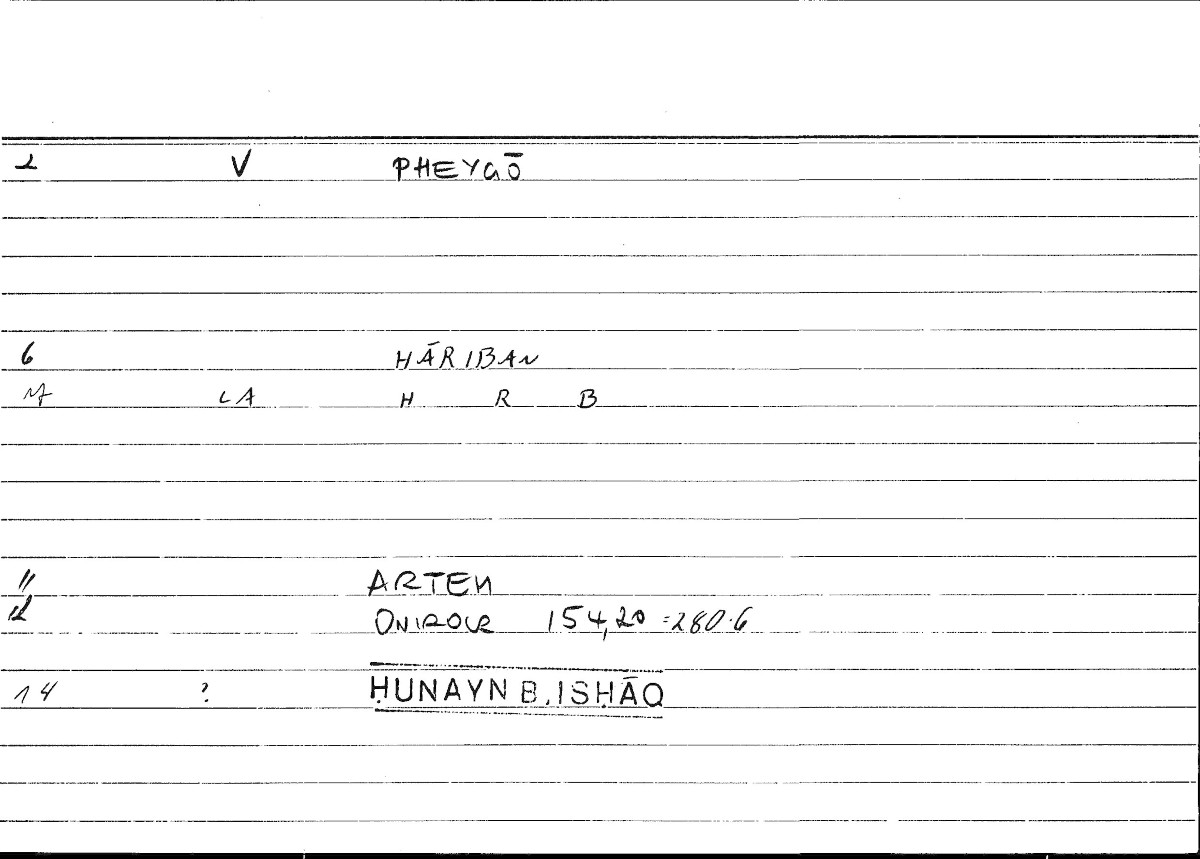 2 V PHEYGŌ
6 HĀRIBAN
7 LA H R B
11 ARTEM
12 ONIROCR 154,20 =280.6
14 ? ḤUNAYN B. ISḤĀQ